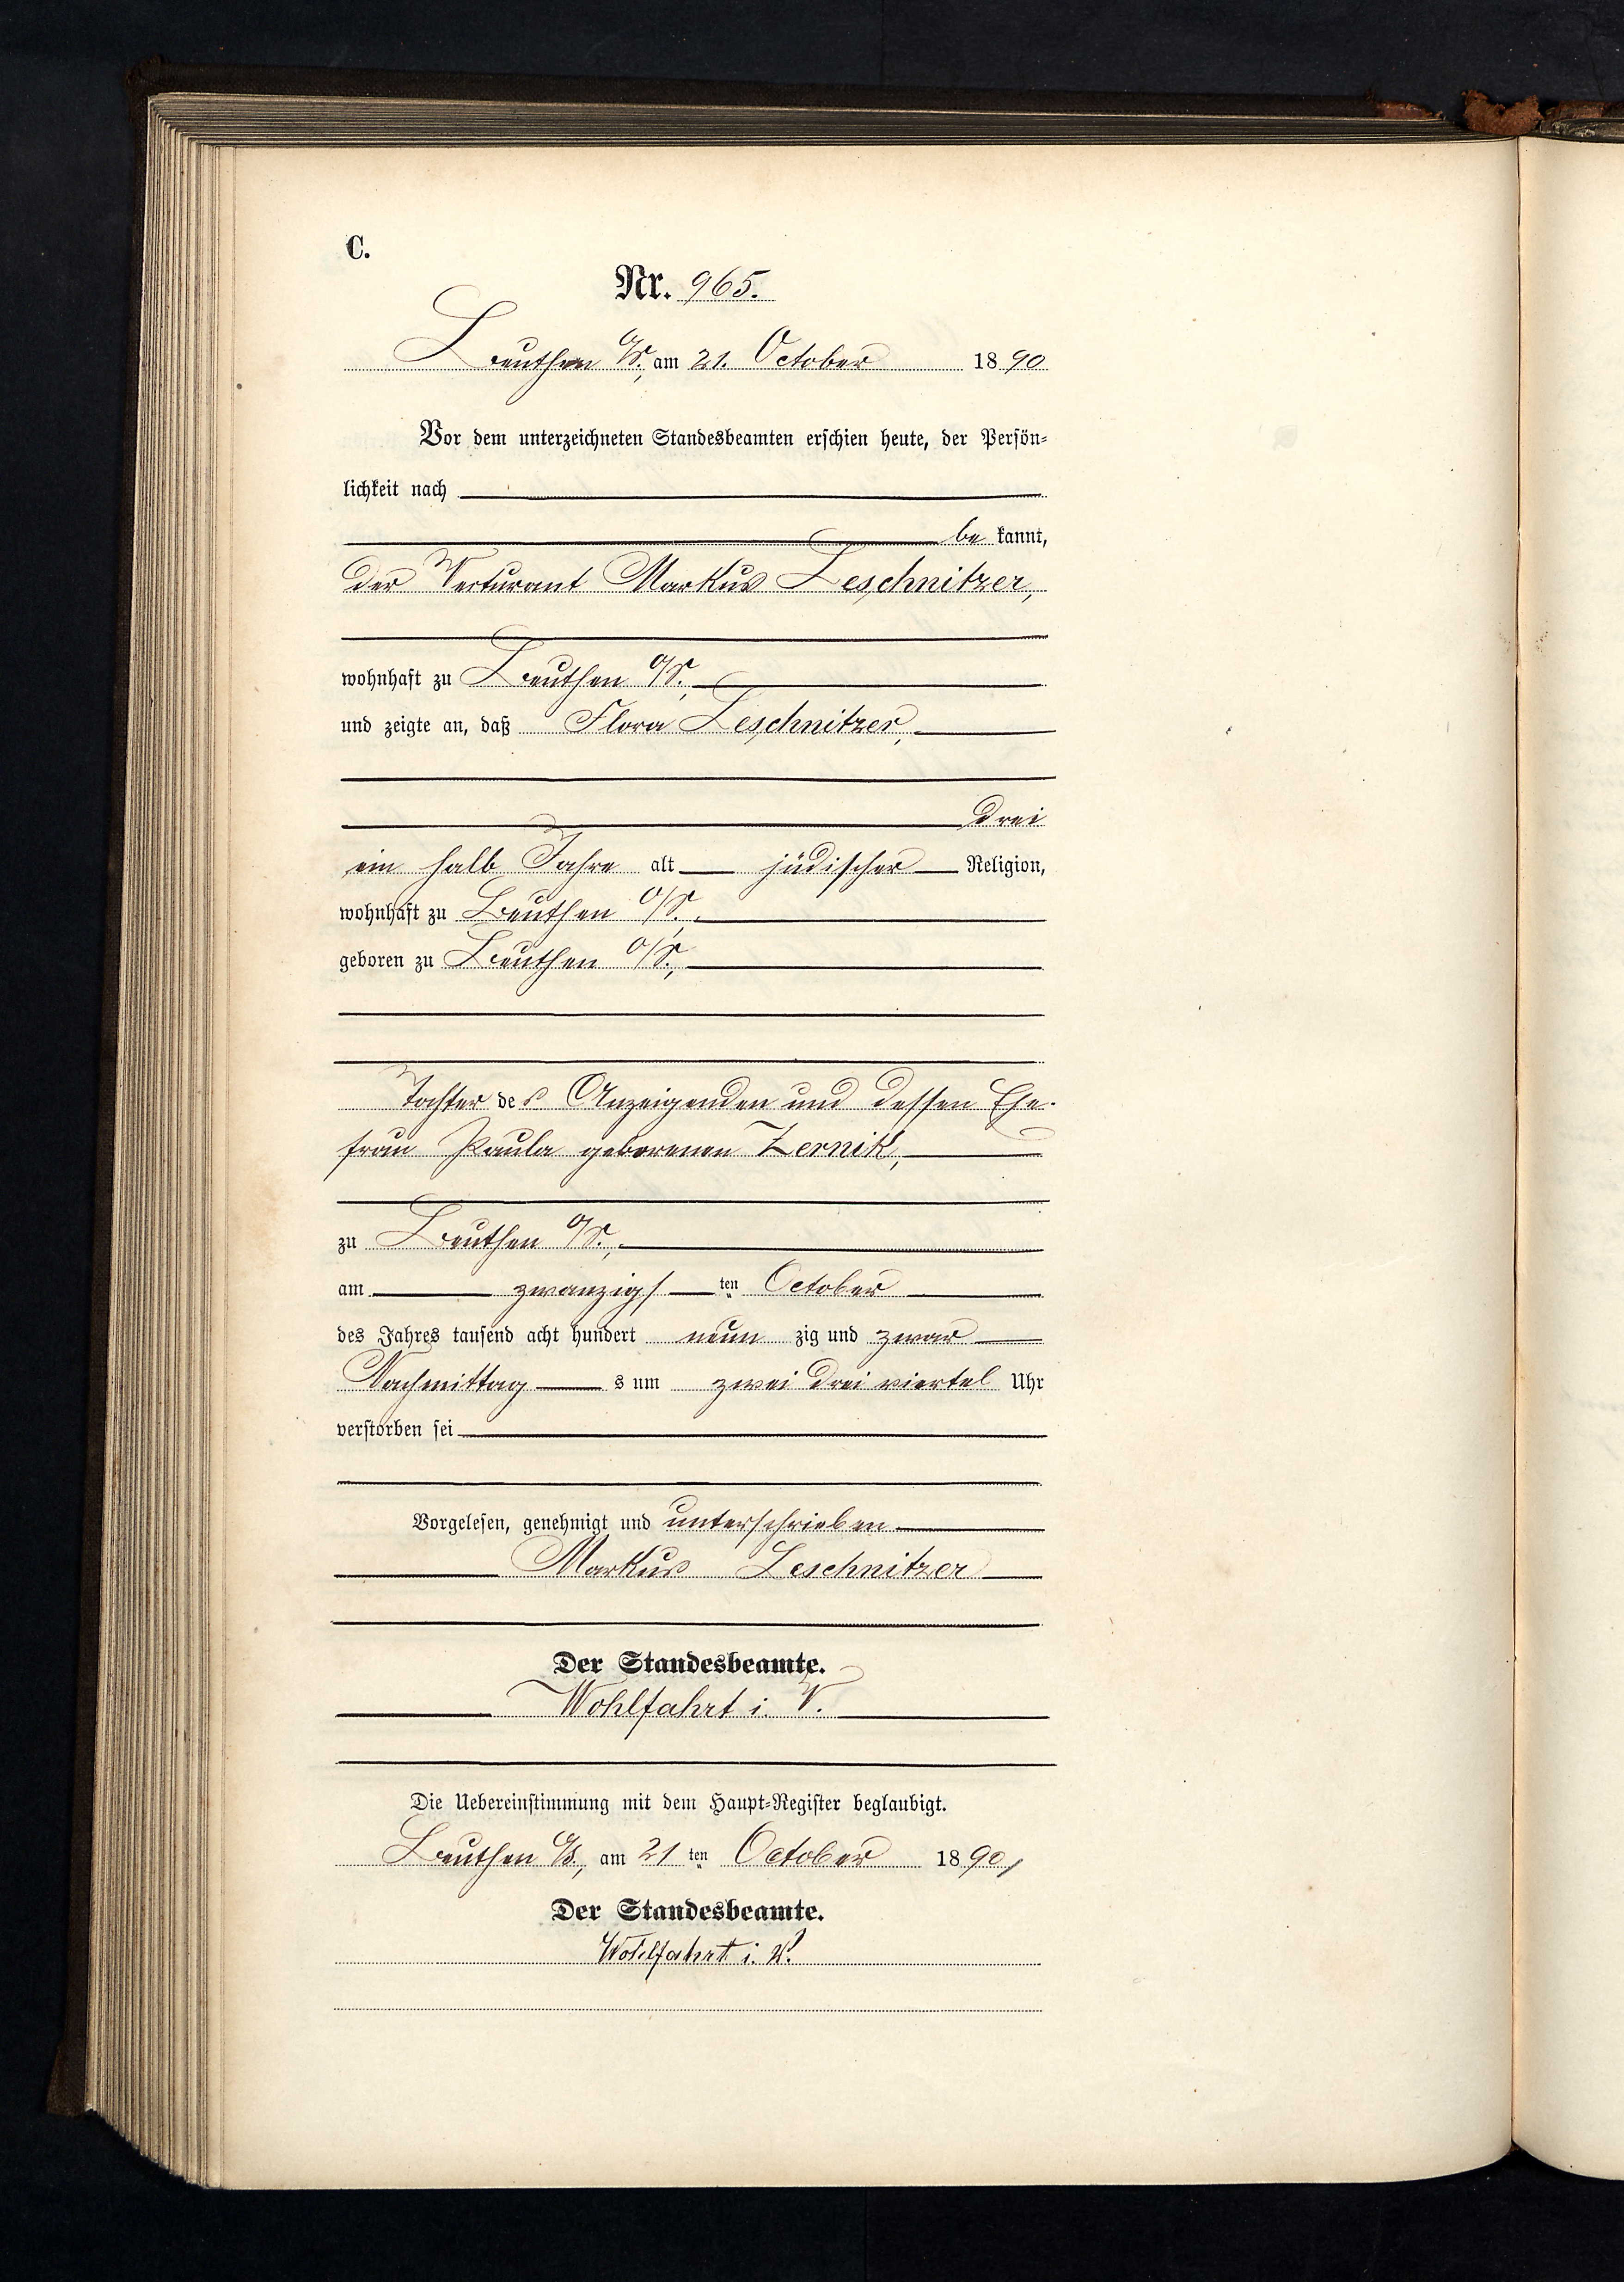 C.
Nr. 965.
Beuthen O/S., am 21. October 1890
Vor dem unterzeichneten Standesbeamten erschien heute, der Persön-
lichkeit nach
be kannt,
der Markus Leschnitzer,
wohnhaft zu Beuthen O/S.,
und zeigte an, daß Flora Leschnitzer,
drei
ein halb Jahre alt jüdischer Religion,
wohnhaft zu Beuthen O/S.,
geboren zu Beuthen O/S.,
Tochter des Anzeigenden und dessen Ehe-
frau Paula geborenen Zernik,
zu Beuthen O/S.,
am zwanzigsten October
des Jahres tausend acht hundert neun zig und zwar
Nachmittag s um zwei drei viertel Uhr
verstorben sei
Vorgelesen, genehmigt und unterschrieben
Markus Leschnitzer
Der Standesbeamte.
Wohlfahrt i. V.
Die Uebereinstimmung mit dem Haupt-Register beglaubigt.
Beuthen O/S., am 21 ten October 1890,
Der Standesbeamte.
Wohlfahrt i. V.